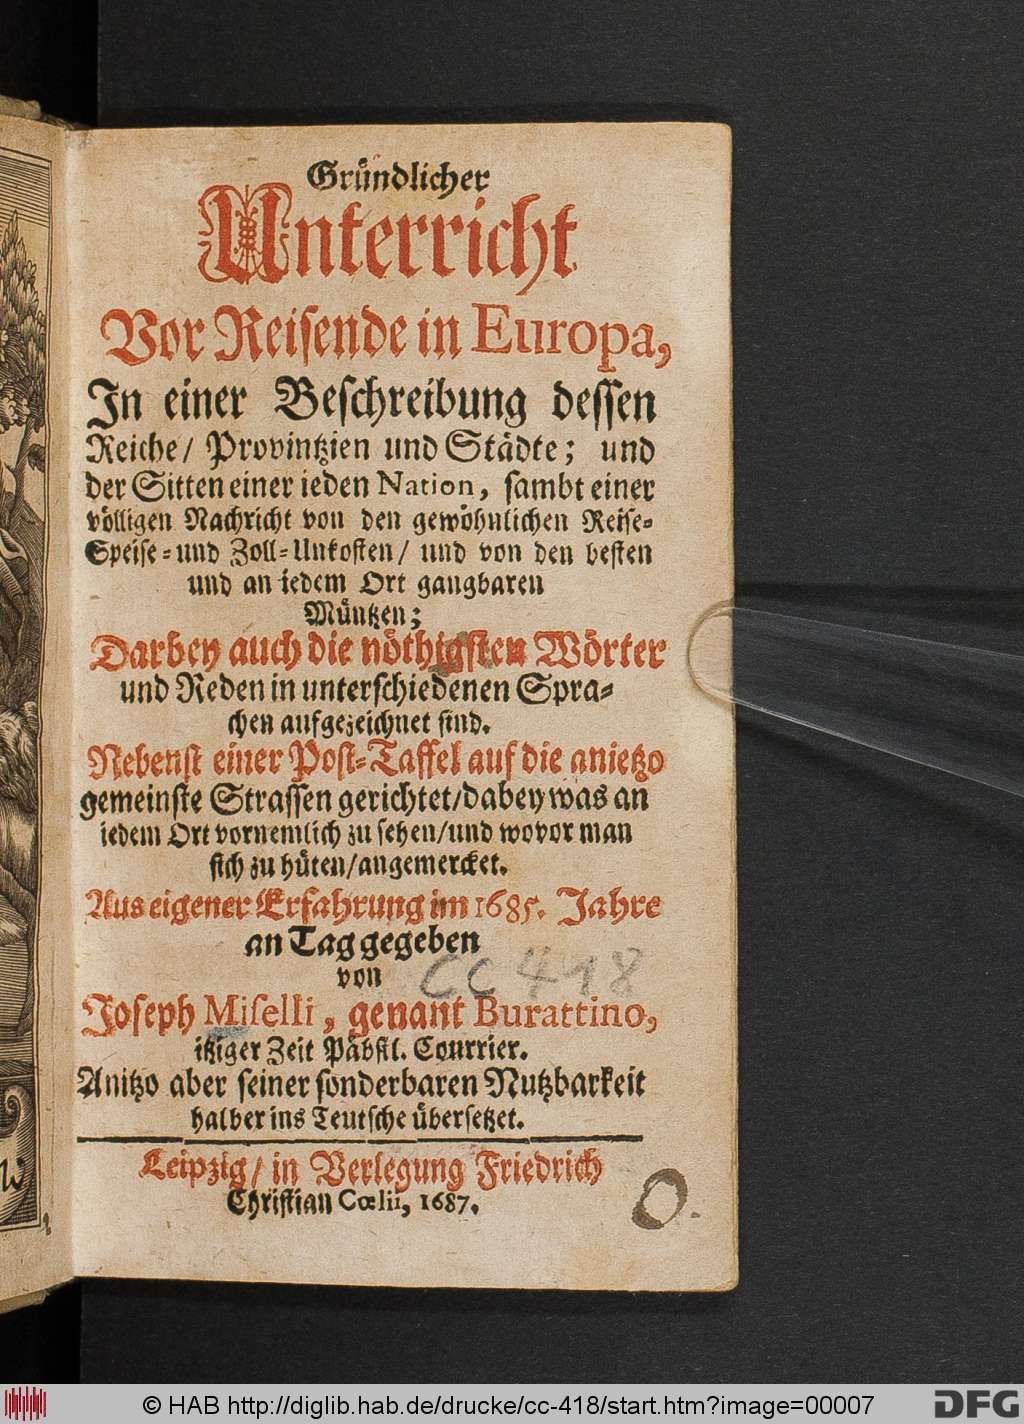 Gründlicher
Unterricht
Vor Reisende in Europa,
In einer Beschreibung dessen
Reiche/ Provintzien und Städte; und
der Sitten einer ieden Nation, sambt einer
völligen Nachricht von den gewöhnlichen Reise-
Speise- und Zoll-Unkosten/ und von den besten
und an iedem Ort gangbaren
Müntzen;
Darbey auch die nöthigsten Wörter
und Reden in unterschiedenen Spra-
chen aufgezeichnet sind.
Nebenst einer Post-Taffel auf die anietzo
gemeinste Strassen gerichtet/dabey was an
iedem Ort vornemlich zu sehen/und wovor man
sich zu hüten/angemercket.
Aus eigener Erfahrung im 1685. Jahre
an Tag gegeben
von
CC 418
Joseph Miselli, genant Burattino,
itziger Zeit Päbstl. Courrier.
Anitzo aber seiner sonderbaren Nutzbarkeit
halber ins Teutsche übersetzet.
Leipzig/ in Verlegung Friedrich
Christian Cœlii, 1687.
© HAB http://diglib.hab.de/drucke/cc-418/start.htm?image=00007
DFG